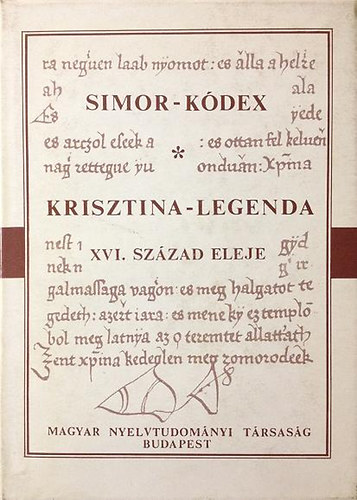 ra neguen laab nyomot: es alla a helre
ah ala
Es yede
SIMOR-KÓDEX
es arczol eseek a : es ottan fel keluen
nag rettegue yu onduan: Xpma
*
KRISZTINA-LEGENDA
nest gyd
nek n g ir
XVI. SZÁZAD ELEJE
galmassaga vagon: es meg halgatot te
gedeth: azert iara: es mene ky ez templo
bol meg latnya az o teremtet allattath
Zent xpina kedeglen meg zomorodeek
MAGYAR NYELVTUDOMÁNYI TÁRSASÁG
BUDAPEST